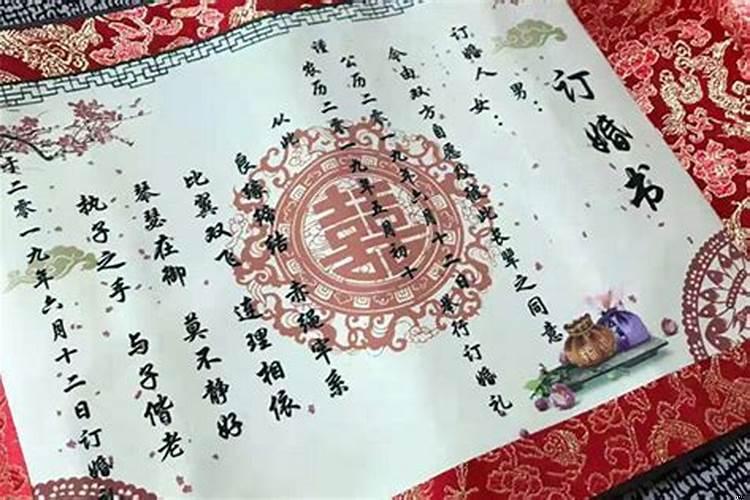 订婚书
男：
订婚人 女：
今由双方自愿及 此长辈之同意
公历二零一九年六月十二日举行订婚礼
谨 农历二零一九年五月初十
从此
良缘缔结 赤绳牢系
比翼双飞 连理相依
琴瑟在御 莫不静好
执子之手 与子偕老
于二零一九年六月十二日订婚
囍